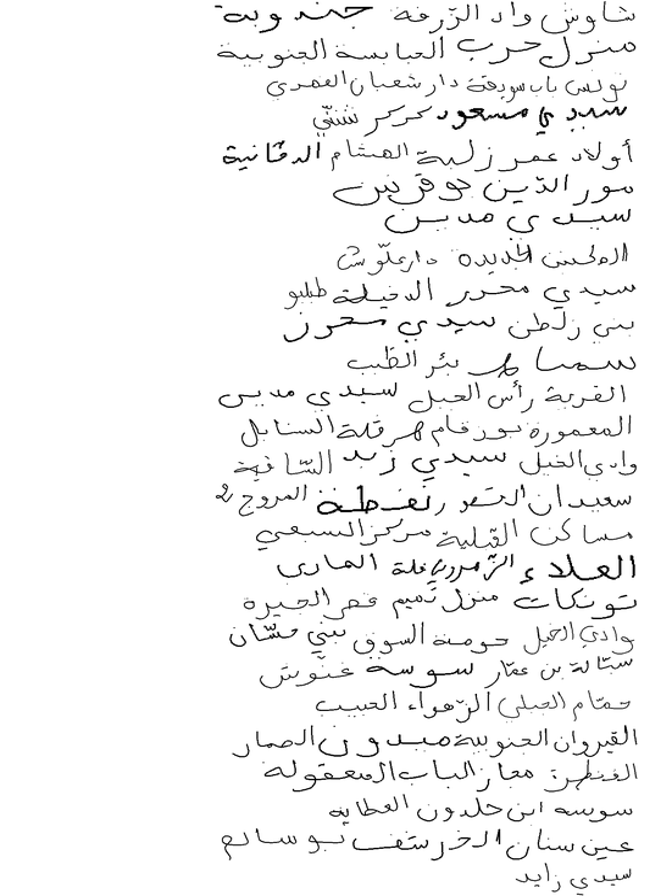 شاوش واد الزرقة جندوبة
منزل حرب العبابسة الجنوبية
تونس باب سويقة دار شعبان الفهري
سيدي مسعود كركر شنني
أولاد عمر زلبة الهيشام الدخانية
نور الدين بوقرنين
سيدي مدين
الجديدة دار علوش
سيدي محرز الدخيلة طبلبو
بني زلطن سيدي محرز
بئر الطيب
القرية رأس الجبل سيدي مدين
المعمورة بوزقام هرقلة السنابل
وادي الخيل سيدي زيد الشافية
سعيدان القصور نفطة المروج 2
مساكن القبلية مركز السبعي
العلاء
تونكات منزل تميم قصر الجيرة
وادي الخيل حومة السوق بني حسان
ستالة بن عمار سوسة غنوش
حمام الجبلي الزهواء الحبيب
القيروان الجنوبية ميدون الصمار
مجاز الباب المعقولة
سوسة ابن خلدون العطاية
عين سنان الخرشف بوسالم
سيدي زايد